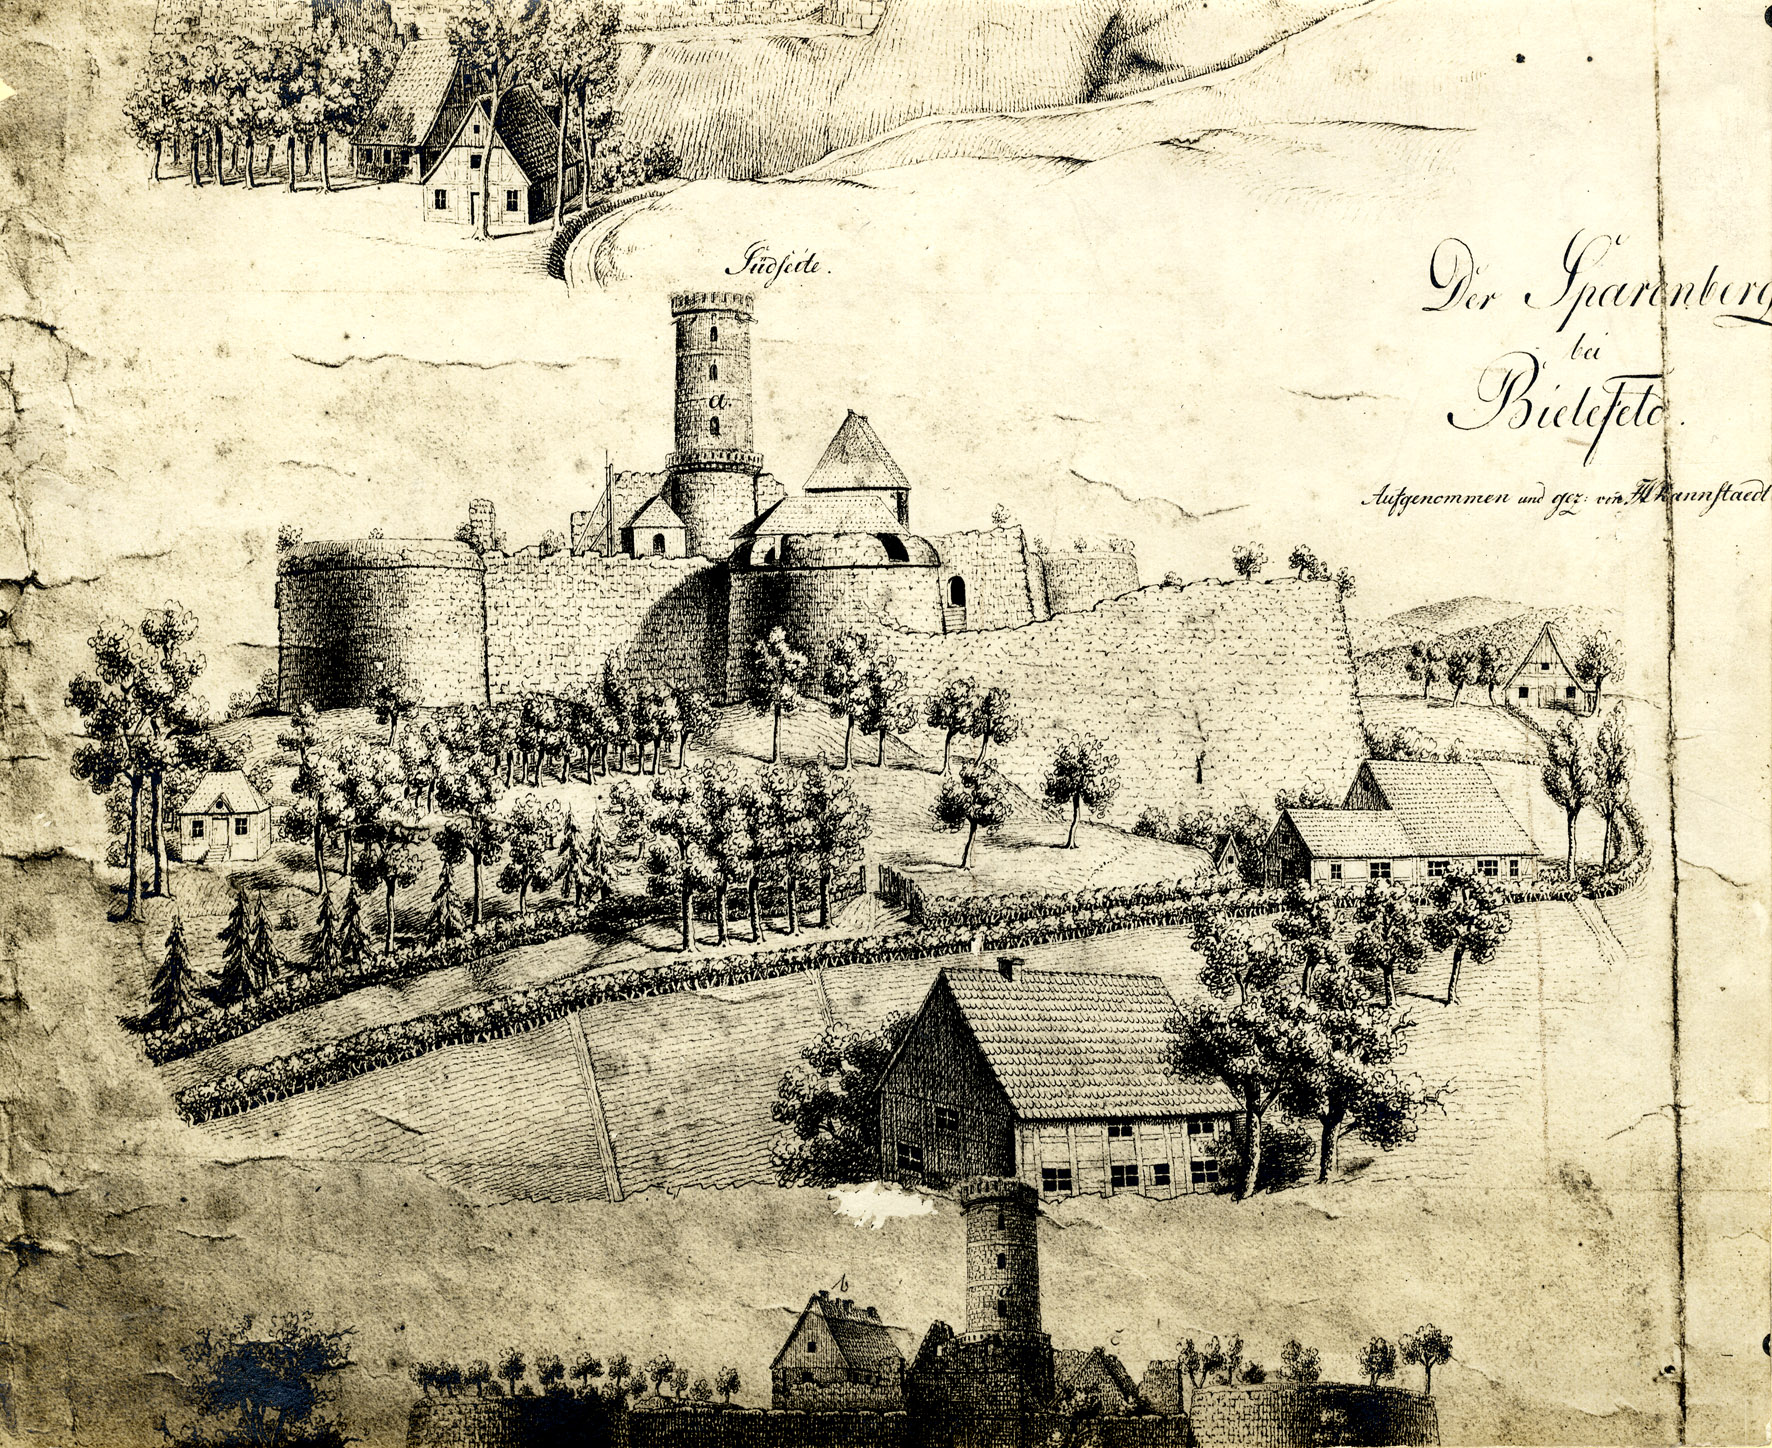 Südseite.
Der Sparenberg
bei
Bielefeld.
Aufgenommen und gez: von
a.
b
a
c